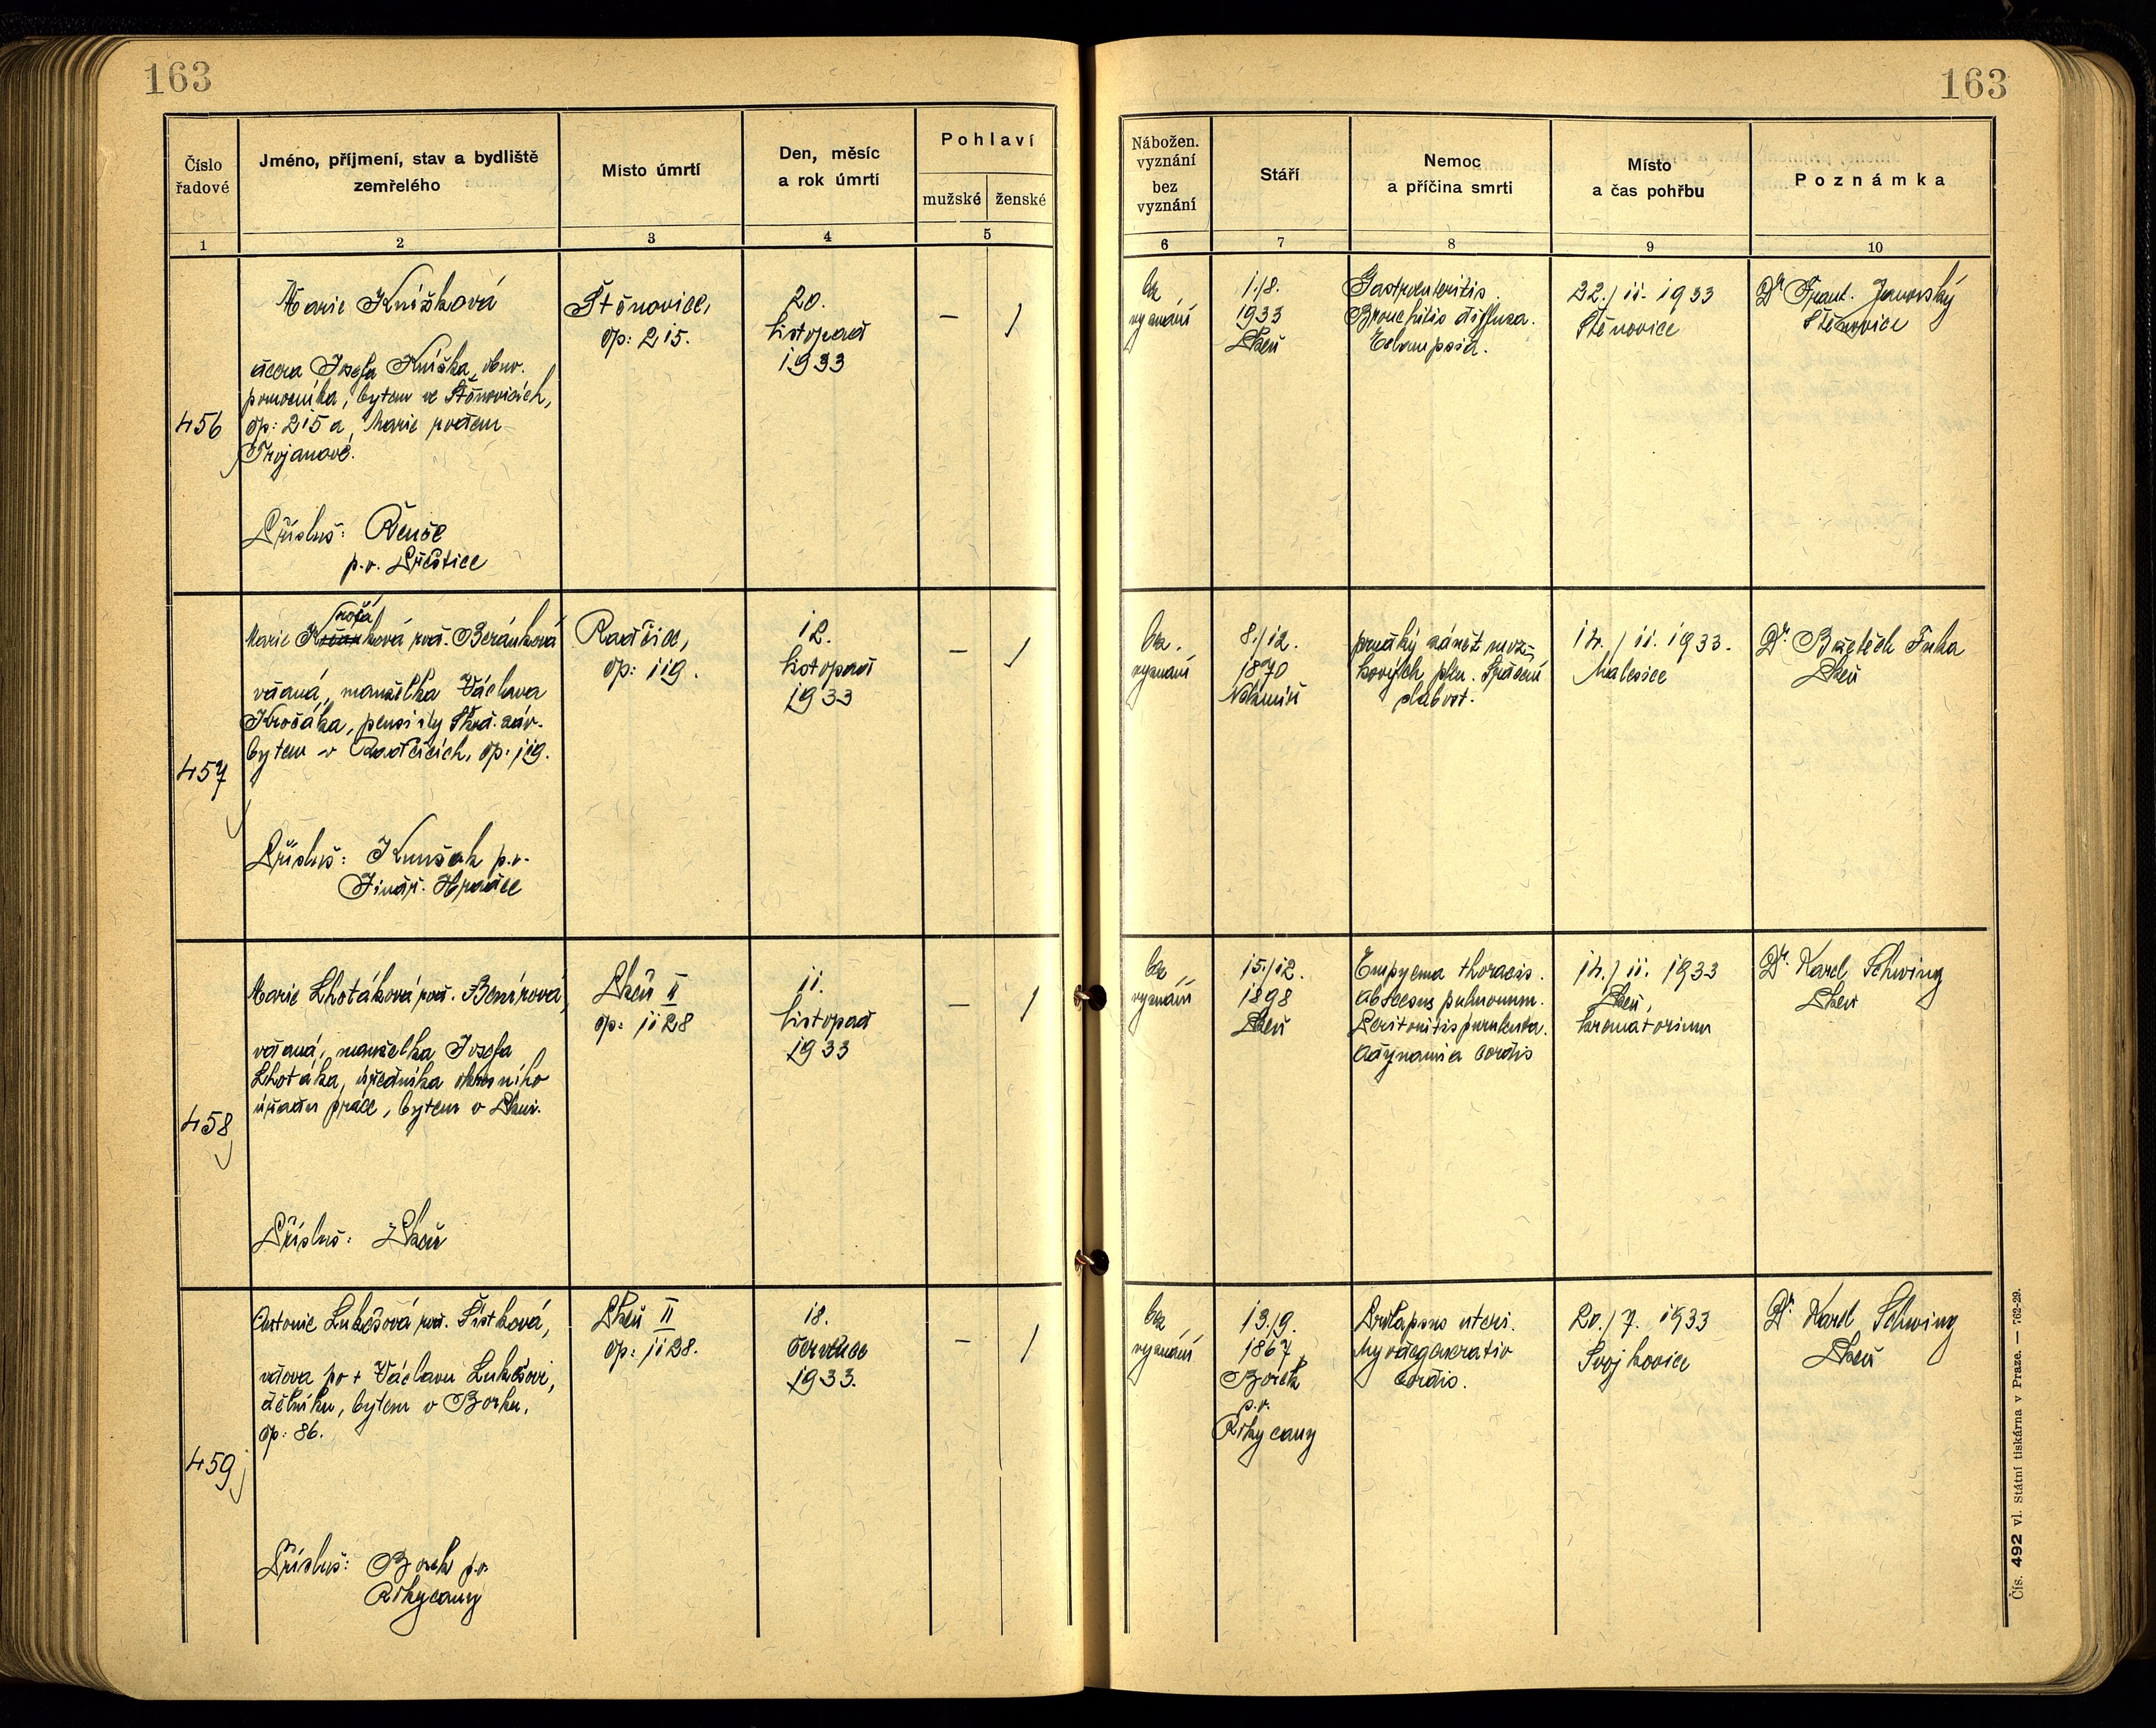 163
163
Číslo řadové
Jméno, příjmení, stav a bydliště zemřelého
Místo úmrtí
Den, měsíc a rok úmrtí
Pohlaví
mužské
ženské
1
2
3
4
5
Nábožen. vyznání
bez vyznání
Stáří
Nemoc a příčina smrti
Místo a čas pohřbu
Poznámka
6
7
8
9
10
456
Marie Knížková
dcera Josefa Knížka, obuv.
pomocníka, bytem ve Štěnovicích,
čp: 215 a Marie rodem
Trojanové.
Přísluš: Řenče
p.o. Přeštice
Štěnovice,
čp: 215.
20.
listopad
1933
–
/
bez
vyznání
1./8.
1933
Plzeň
Gastroenteritis.
Bronchitis diffusa.
Eclampsia.
22./11. 1933
Štěnovice
Dr Frant. Janovský
Štěnovice
457
Marie Krošáková roz. Beránková
vdaná, manželka Václava
Krošáka, pensisty Škod. záv.
bytem v Radčicích, čp: 119.
Přísluš: Kunžak p.o.
Jindř. Hradec
Radčice,
čp: 119.
12.
listopad
1933
–
/
bez
vyznání
8./12.
1870
prudký zánět moz-
kových plen. Srdeční
slabost.
14./11. 1933.
Malesice
Dr. Fuka
Plzeň
458
Marie Lhotáková roz.
vdaná, manželka Josefa
Lhotáka, úředníka okresního
úřadu práce, bytem v Plzni.
Přísluš: Plzeň
Plzeň II
čp: 1128
11.
listopad
1933
–
/
bez
vyznání
15./12.
1898
Plzeň
Empyema thoracis.
Abscesus pulmonum.
Peritonitis purulenta.
Adynamia cordis
14./11. 1933
Plzeň,
krematorium
Dr. Karel Schwing
Plzeň
459
Antonie Lukešová roz. Šístková,
vdova po + Václavu Lukešovi,
dělníku, bytem v Borku,
čp: 86.
Přísluš: Borek p.o.
Rokycany
Plzeň II
čp: 1128.
18.
července
1933.
–
/
bez
vyznání
13./9.
1867
Borek
p.o.
Rokycany
Prolapsus uteri.
Myodegeneratio
cordis.
20./7. 1933
Svojkovice
Dr. Karel Schwing
Plzeň
Čís. 492 vl. Státní tiskárna v Praze. — 762-29.